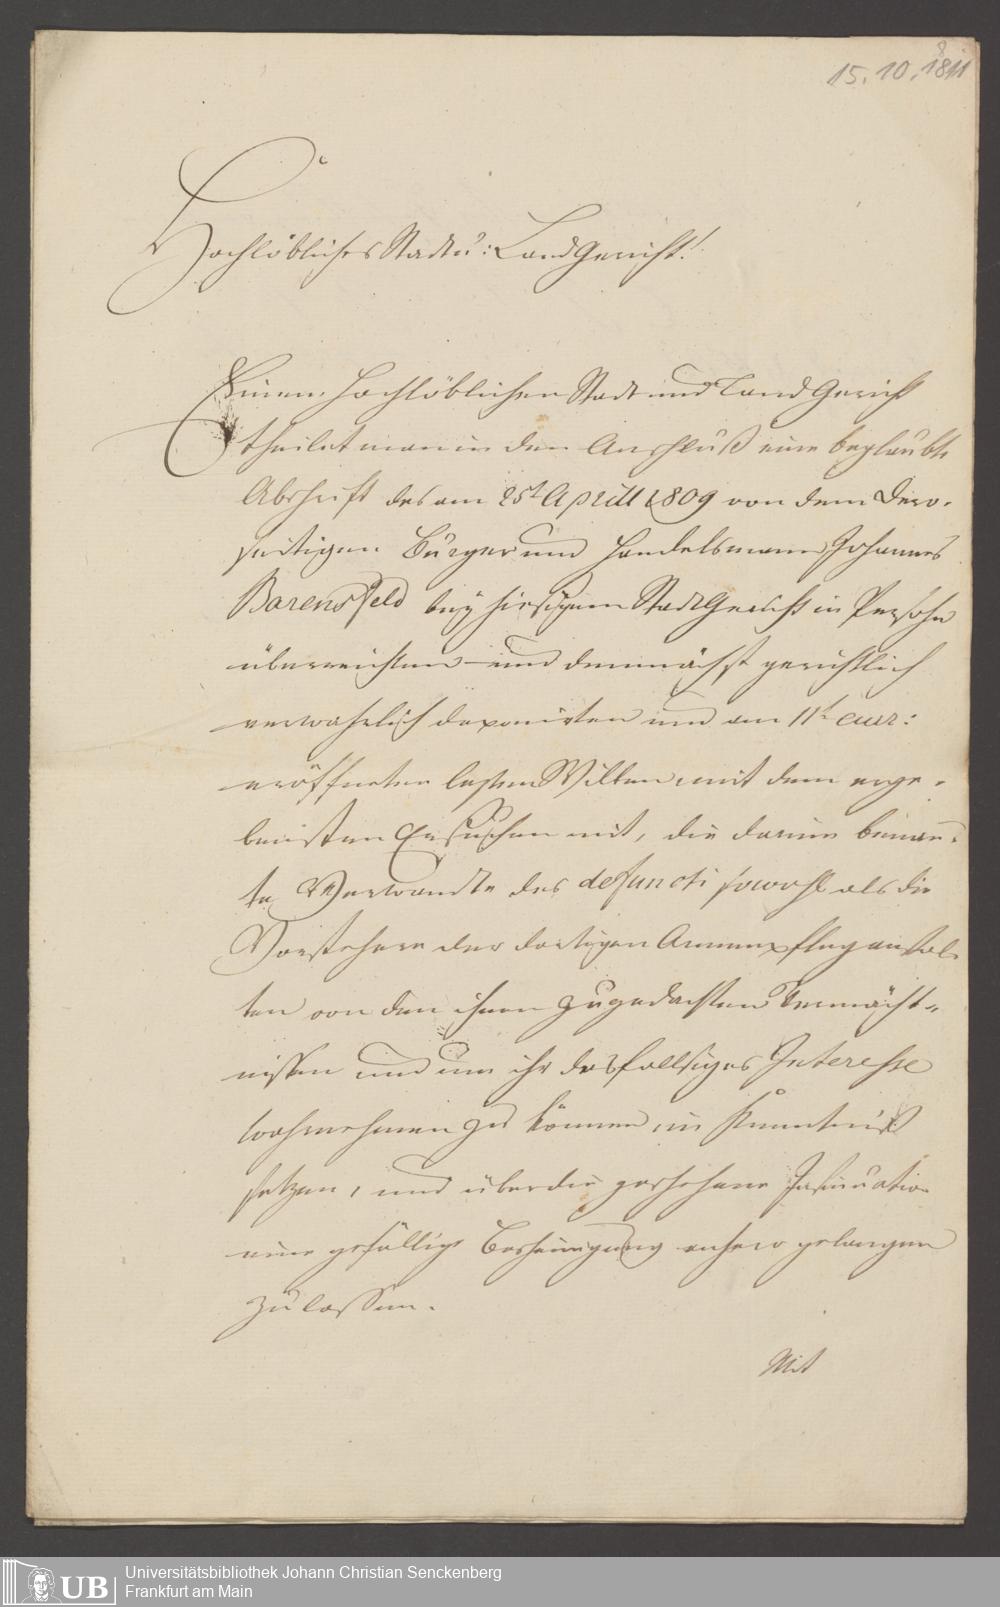 8
15.10.1811
Hochlöbliches Stadt u: Land Gericht!
Einem Hochlöblichen Stadt und Land Gericht
theilet man in dem Anschluß eine beglaubte
Abschrift des am 25t Aprill 1809 von dem Dero-
seitigen Bürger und Handelsmann Johannes
Barensfeld bey hiesigem Stadt Gericht in Persohn
überreichten und demnächst gerichtlich
verwahrlich deponirten und am 11t cur:
eröffneten lezten Willen, mit dem erge-
bensten Ersuchen mit, die darinn benann-
te Verwandte des defuncti sowohl als die
Vorstehere der dortigen Armenpfleganstal-
ten von den ihnen zugedachten Vermächt-
nissen und um ihr desfallsiges Interesse
wahrnehmen zu können, in Kenntniß
setzen, und über die geschehene Insinuation
eine gefällige Bescheinigung anhero gelangen
zu lassen.
Mit
UB
Universitätsbibliothek Johann Christian Senckenberg
Frankfurt am Main